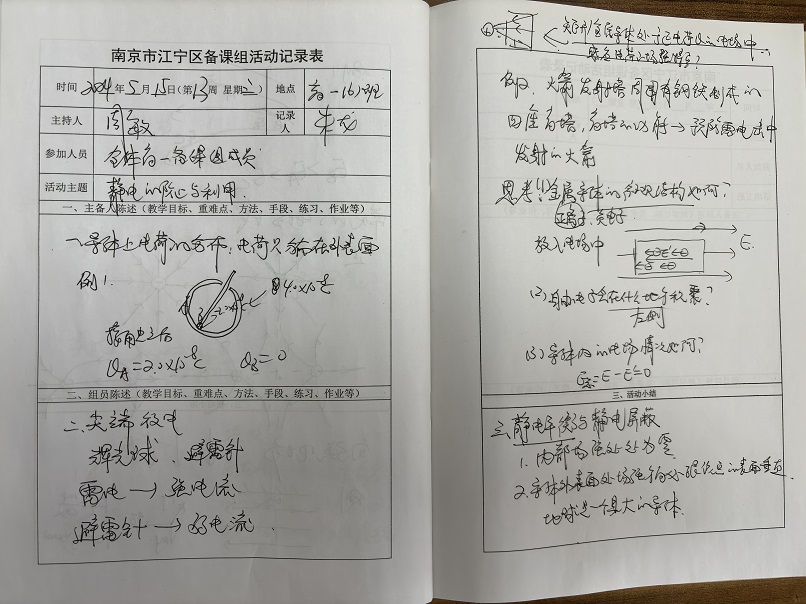 南京市江宁区备课组活动记录表
时间 2024年5月15日(第13周 星期三) 地点 高一(6)班
主持人 周敏 记录人 朱龙
参加人员 全体高一备课组成员
活动主题 静电的防止与利用.
一、主备人陈述(教学目标、重难点、方法、手段、练习、作业等)
一.导体上电荷的分布:电荷只分布在外表面
例1.
接触之后
QA=2.0×10⁻⁸C QB=0
二、组员陈述(教学目标、重难点、方法、手段、练习、作业等)
二.尖端放电
辉光球、避雷针
雷电→强电流
避雷针→弱电流.
例2、火箭发射塔周围有钢铁制成的
四座高塔,高塔的功能→预防雷电击中
发射的火箭
思考(1)金属导体的微观结构如何?
正离子、负电子
放入电场中
E
(2)自由电子会在什么地方积累?
左侧
(3)导体内的电场情况如何?
=E-E'=0
三、活动小结
三、静电平衡与静电屏蔽
1.内部场强处处为零
2.导体外表面处场强方向必跟该点的表面垂直
地球是一个最大的导体.